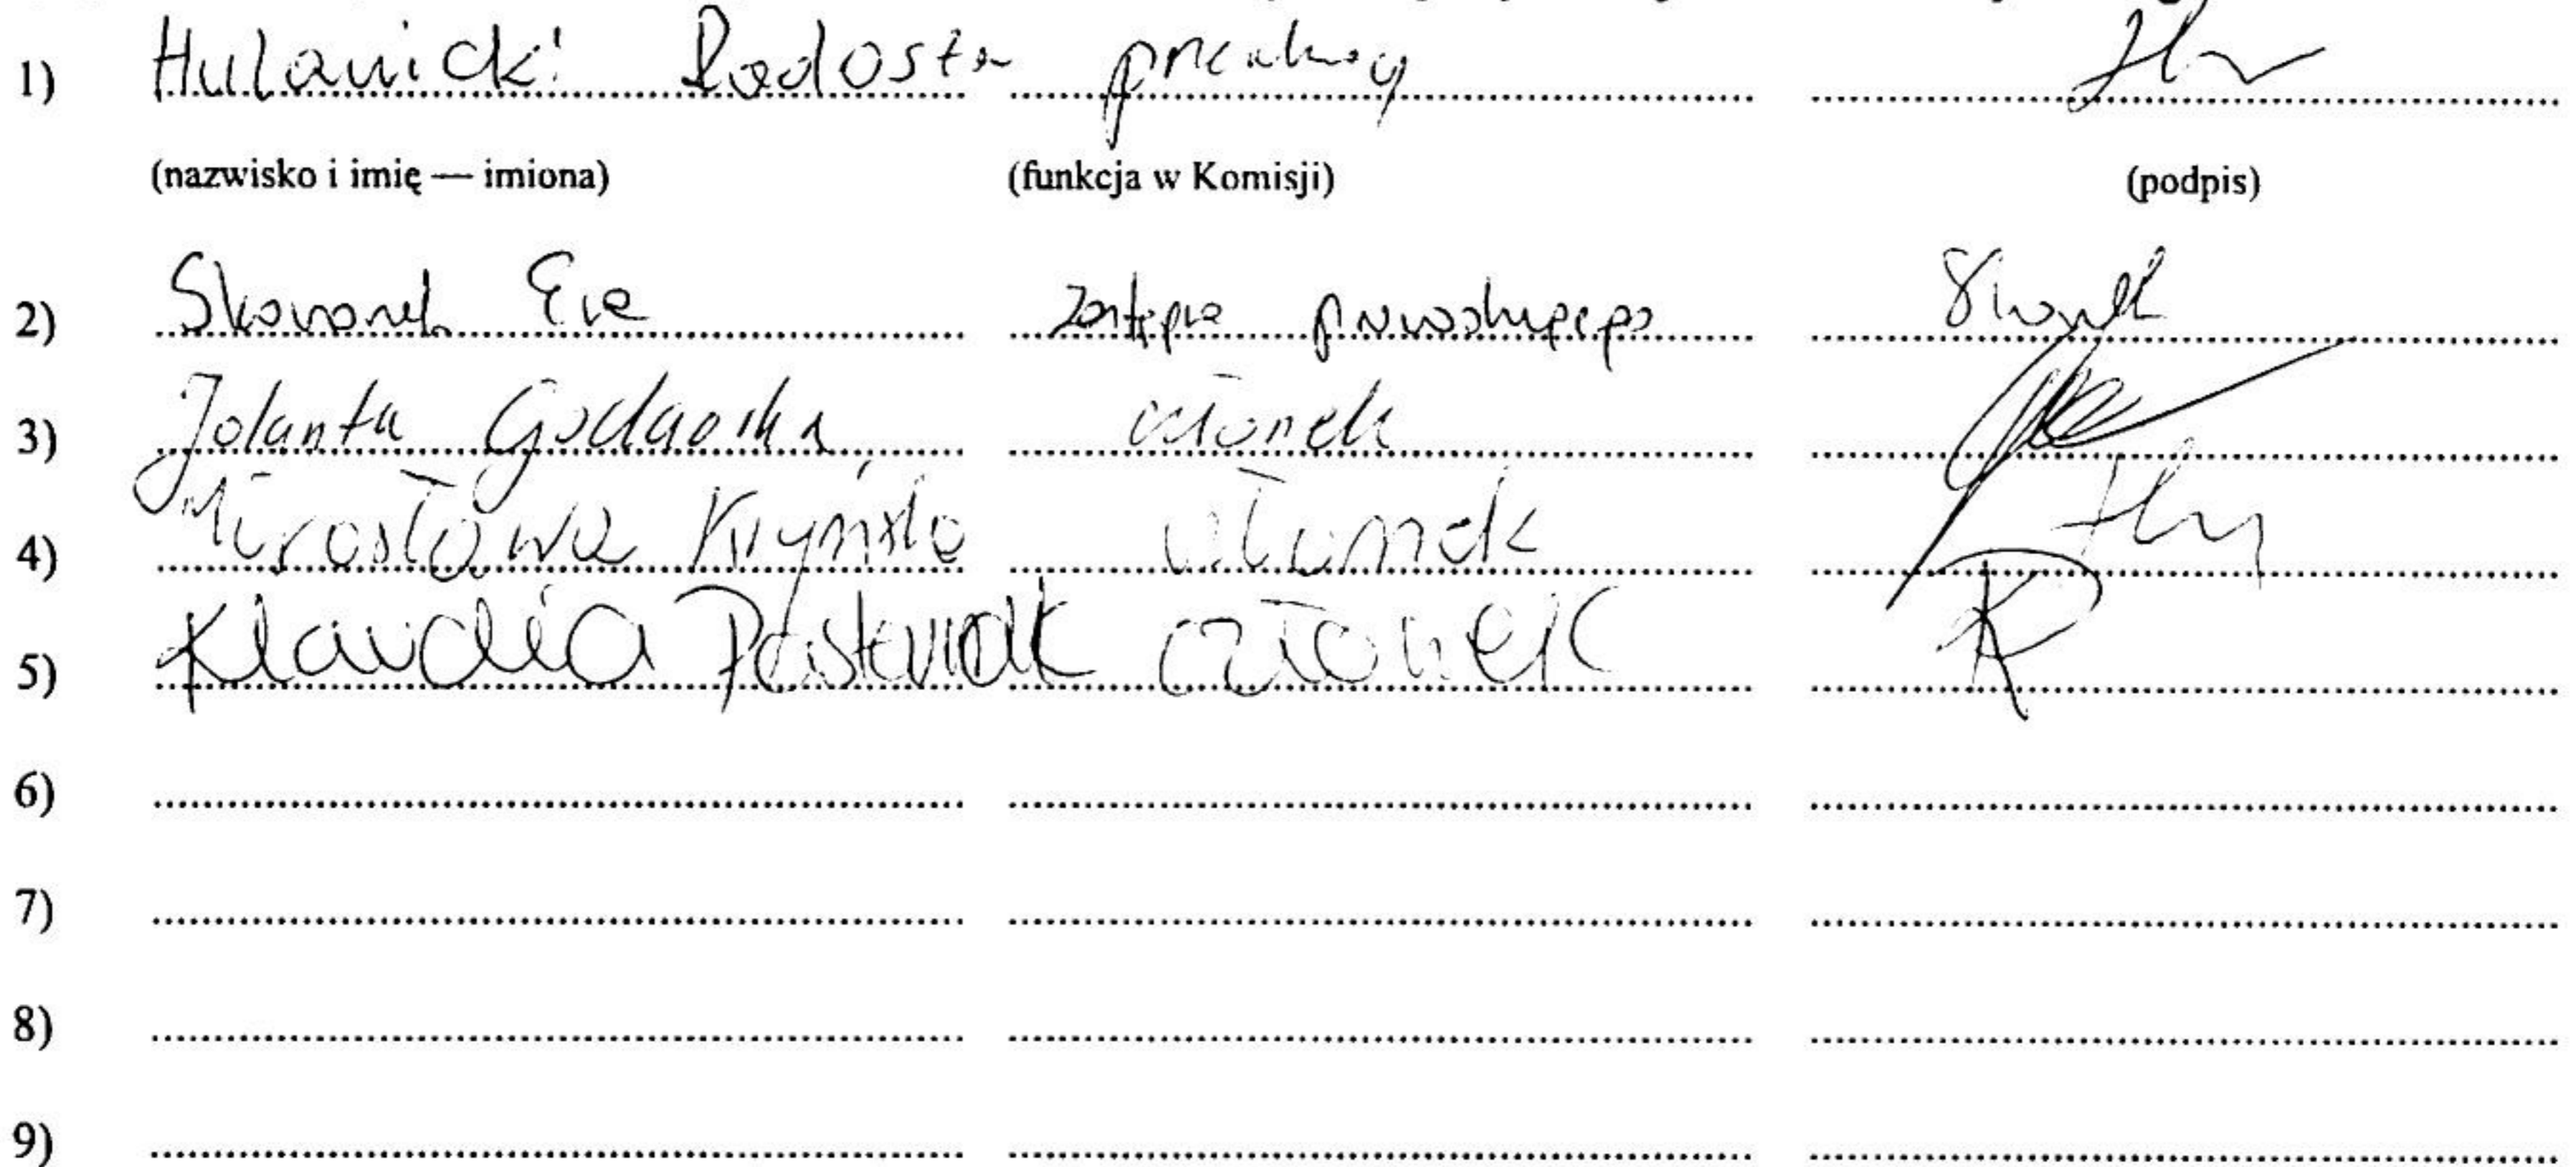 1) Hulanicki Radosła
(nazwisko i imię — imiona) (funkcja w Komisji) (podpis)
2) Skowronek Ewa zastępca przewodniczącego
3) Jolanta członek
4) Mirosława członek
5) Klaudia Pasterniak członek
6)
7)
8)
9)